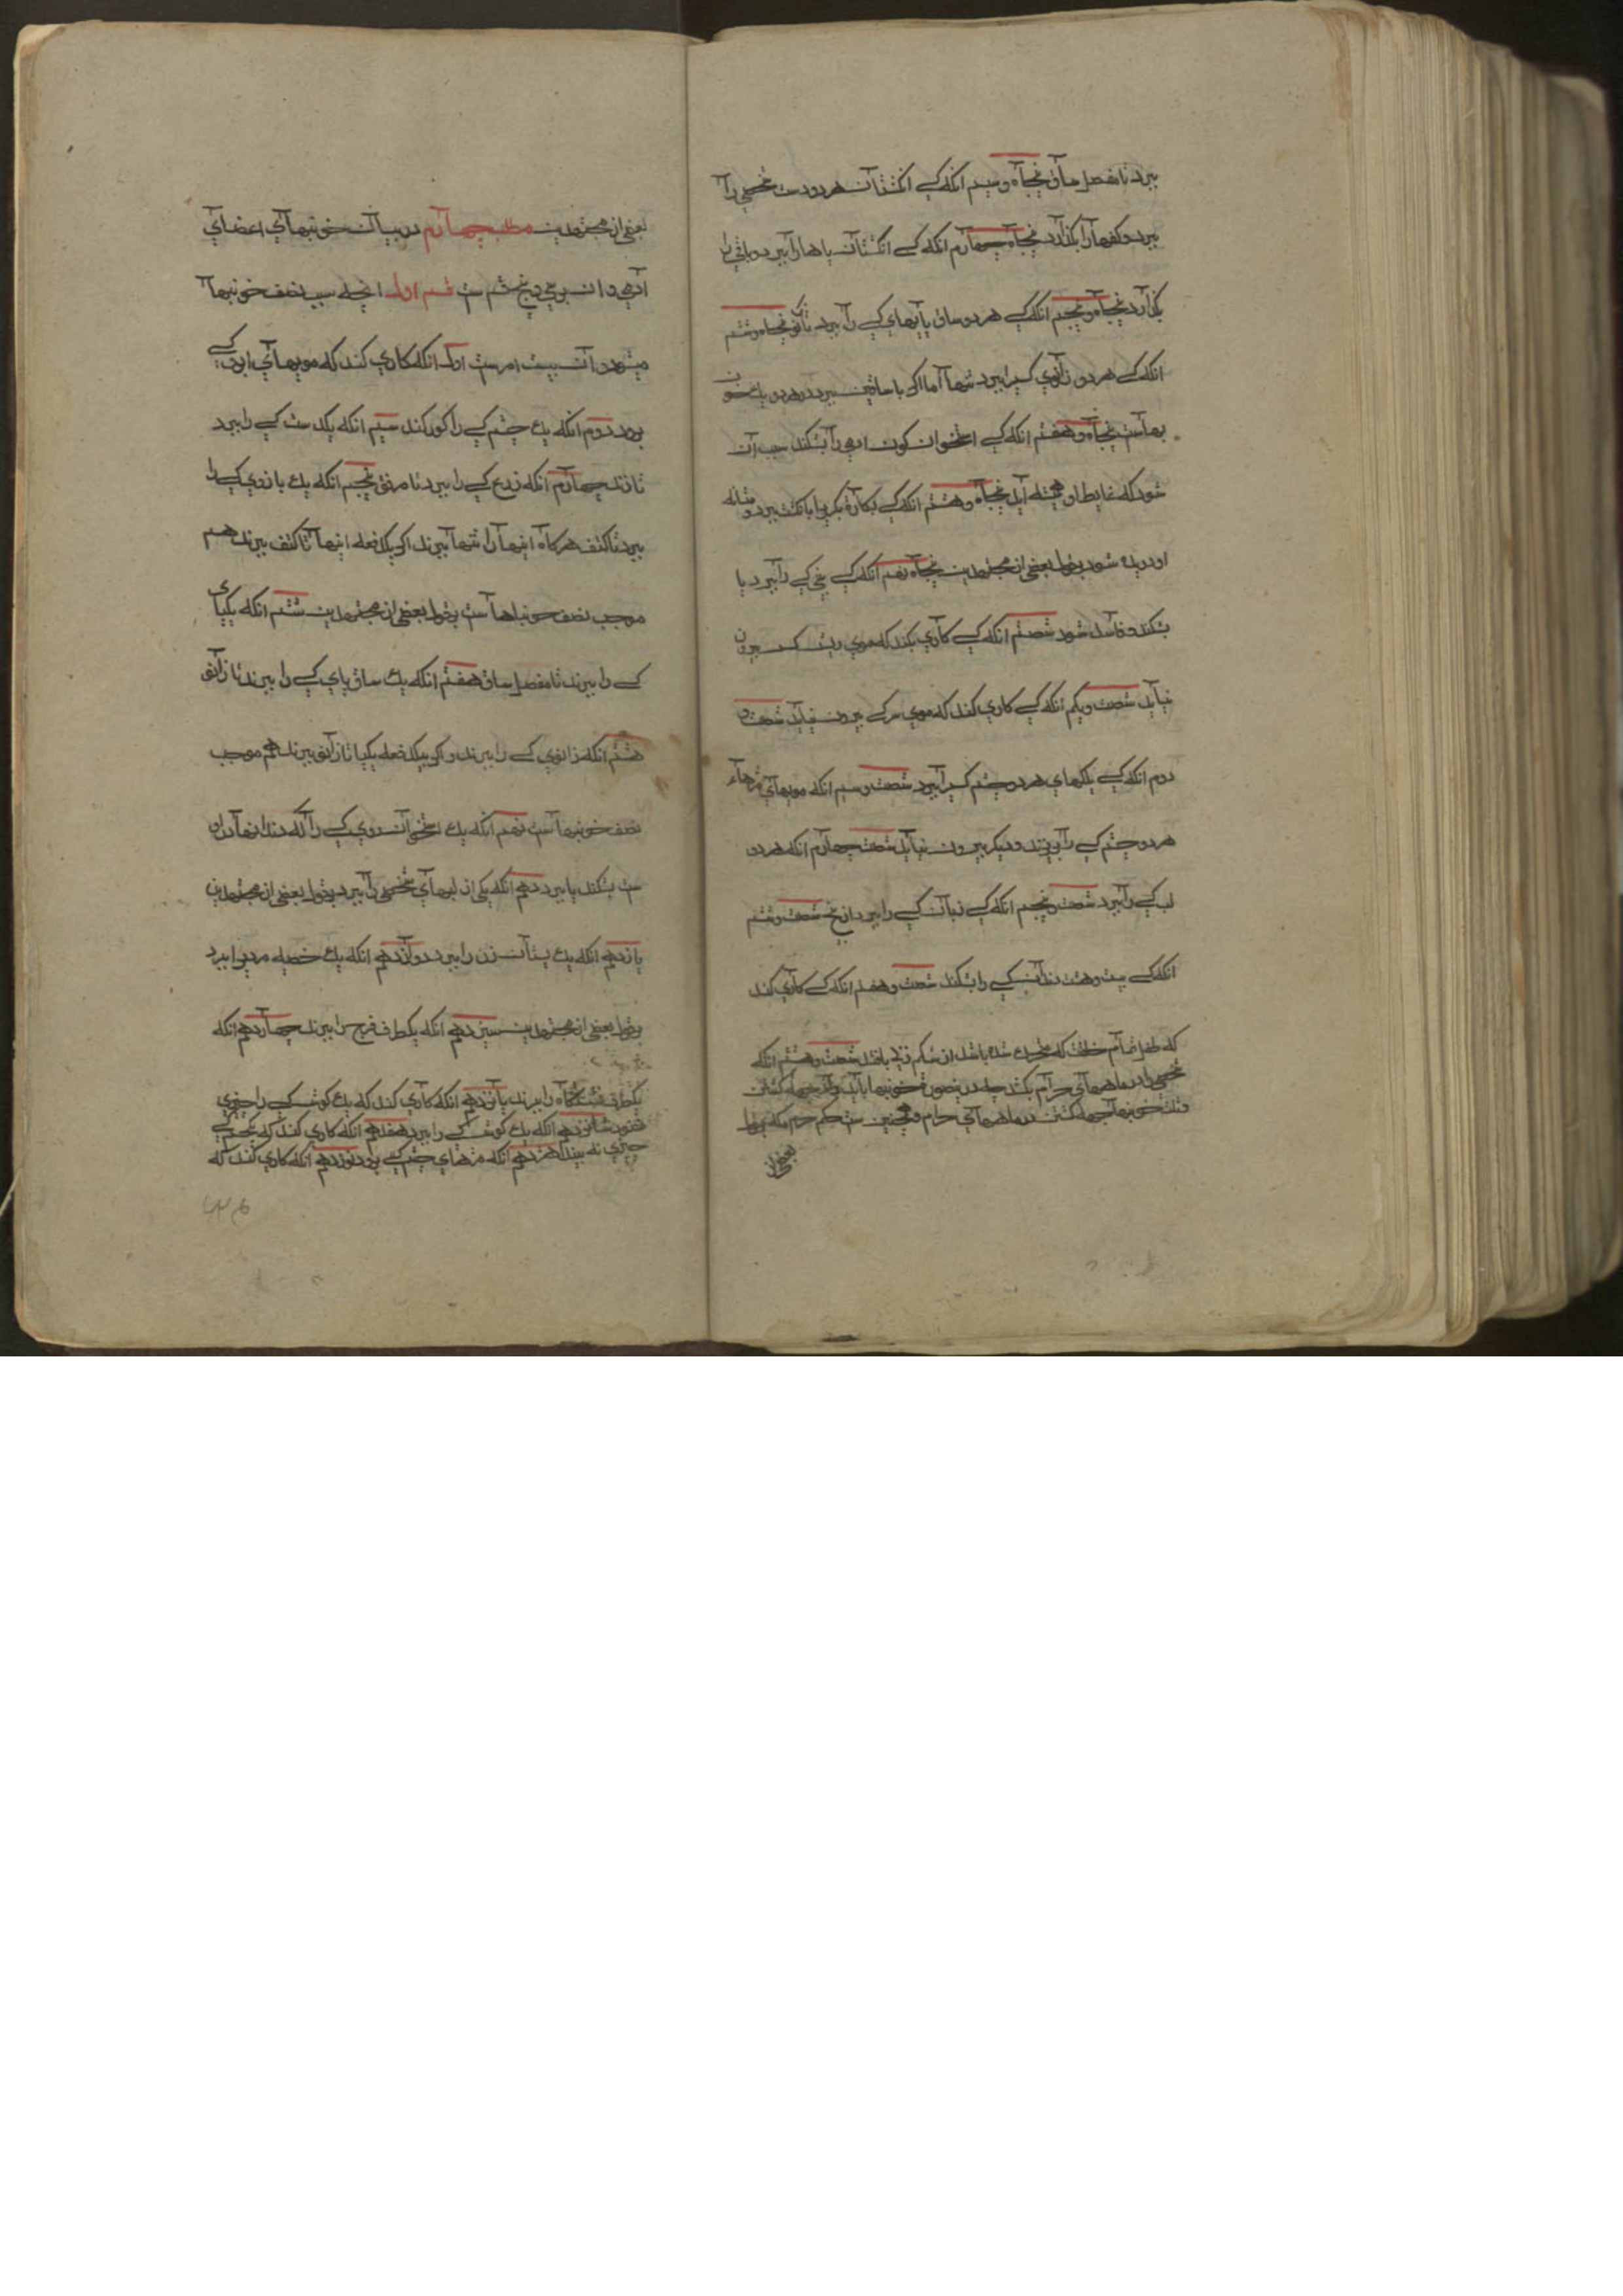 ببرد تا مفصل ساق پنجاه و سیم انکه کسی انکشتان هر دو دست شخصی را
ببرد و کفها را بکذارد پنجاه چهارم انکه کسی انکشتان پاها را ببرد و باقی را
بکذارد پنجاه و پنجم انکه کسی هر دو ساق پایهای کسی را ببرد تا زانو پنجاه و ششم
انکه کسی هر دو زانوی کسیرا ببرد تنها اما اکر با ساقین ببرد در هر دو یک خون
بها ست پنجاه و هفتم انکه کسی استخوان کون ادمی را بشکند سبب آن
شود که غایط او همیشه آید پنجاه و هشتم انکه کسی بکارة بکریرا بانکشت ببرد و مثانه
او دریده شود بقول بعضی از مجتهدین پنجاه نهم انکه کسی بینی کسی را ببرد یا
بشکند و فاسد شود شصتم انکه کسی کاری بکند که موی ریش کسی بیرون
نیاید شصت و یکم انکه کسی کاری کند که موی سر کسی بیرون نیاید شصت و
دوم انکه کسی پلکهای هر دو چشم کسیرا ببرد شصت و سیم انکه مویهای مژهاء
هر دو چشم کسی را بریزند و دیکر بیرون نیاید شصت چهارم انکه هر دو
لب کسی را ببرد شصت و پنجم انکه کسی زبان کسی را ببرد از بیخ شصت و ششم
انکه کسی بیست و هشت دندان کسی را بشکند شصت و هفتم انکه کسی کاری کند
که طفل تمام خلقت که روح شده باشد از شکم زنی بافتد شصت و هشتم انکه
شخصی را در ماههای حرام بکشد چه درینصورة خونبها باید داد بجهة کشتن
و ثلث خونبها بجهة کشتن در ماههای حرام و همچنین ست حکم حرم مکه بقول
بعضی از
بعضی از مجتهدین مطلب چهارم در بیان خونبهای اعضای
آدمی و ان بر پنج قسم ست قسم اول انچه سبب نصف خونبها
میشود و آن بیست امر ست اول انکه کاری کند که مویهای ابروی کسی
برود دوم انکه یک چشم کسی را کور کند سیم انکه یکدست کسی را ببرد
تا زند چهارم انکه ذرع کسی را ببرد تا مرفق پنجم انکه یک بازوی کسی را
ببرد تا کتف هرکاه اینها را تنها ببرند اکر یکدفعه اینها تا کتف ببرند هم
موجب نصف خونبها ست بقول بعضی از مجتهدین ششم انکه یکپای
کسی را ببرند تا مفصل ساق هفتم انکه یک ساق پای کسی را ببرند تا زانو
هشتم انکه زانوی کسی را ببرند و اکر بیکدفعه یکپا تا زانو ببرند هم موجب
نصف خونبها ست نهم انکه یک استخوان روی کسی را که دندانها در او
ست بشکند یا ببرد دهم انکه یکی از لبهای شخصی را ببرد بقول بعضی از مجتهدین
یازدهم انکه یک پستان زن را ببرد دوازدهم انکه یک خصیه مردیرا ببرد
بقول بعضی از مجتهدین سیزدهم انکه یکطرف فرج زن را ببرند چهاردهم انکه
یکطرف نشستکاه را ببرند پانزدهم انکه کاری کند که یک کوش کسی را چیزی
نشنود شانزدهم انکه یک کوش کسی را ببرد هفدهم انکه کاری کند که یک چشم کسی
چیزی نه بیند هژدهم انکه مژهای چشم کسی برود نوزدهم انکه کاری کند که